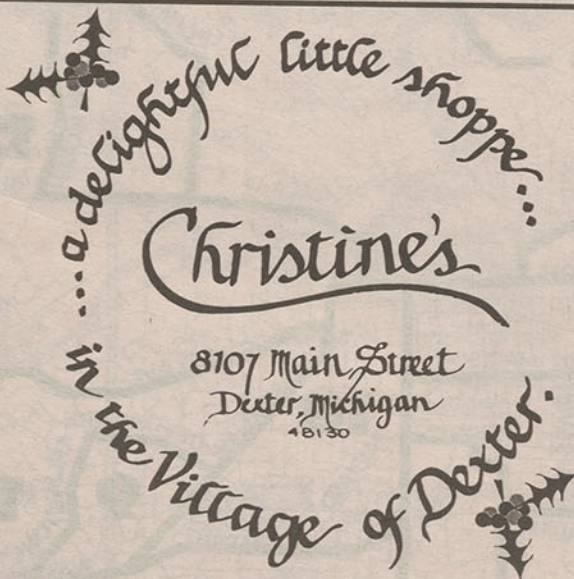 ...a delightful little shoppe...
Christine's
8107 Main Street
Dexter, Michigan
48130
in the Village of Dexter.